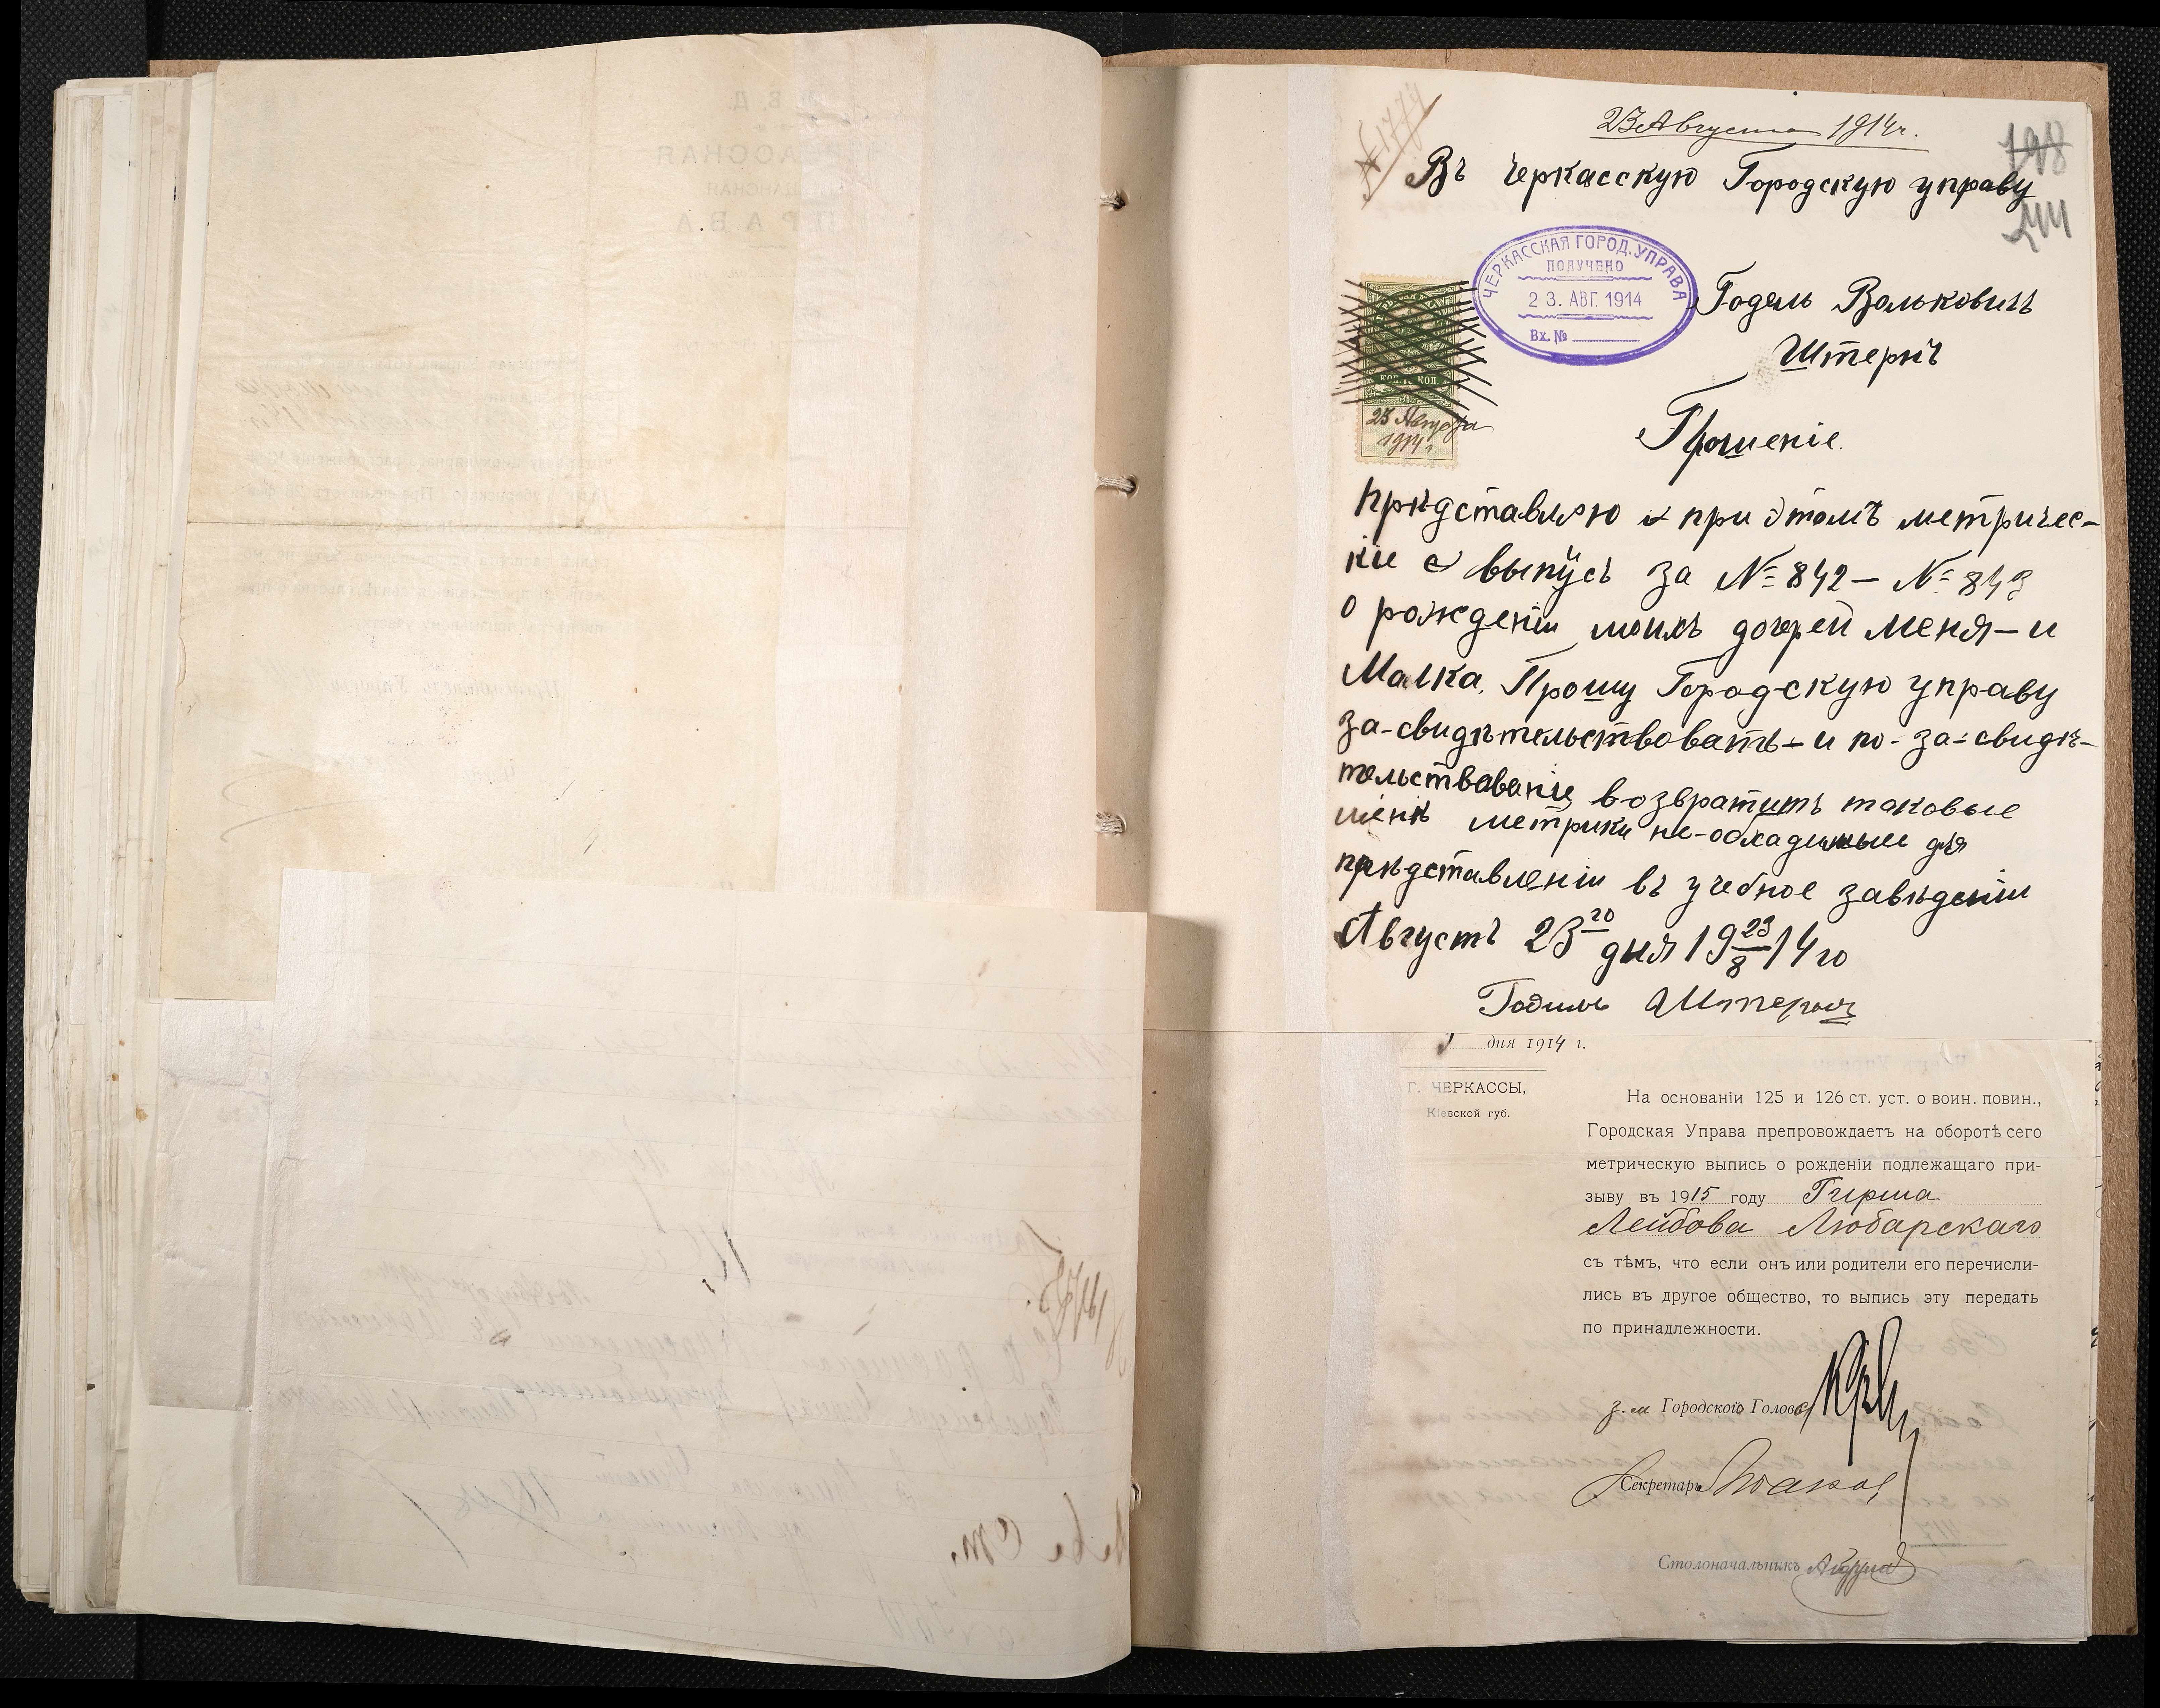 № 1774
23 Августа 1914 г.
198
Въ Черкасскую Городскую управу
244
ЧЕРКАССКАЯ ГОРОД. УПРАВА
ПОЛУЧЕНО
23. АВГ. 1914
Вх. №
Годель Вольковичъ
Штернъ
КОП. 75 КОП.
23 Августа
1914 г.
Прошеніе.
прѣдставляю и при этомъ метричес-
кіе с выпусь за №=842 – №=843
о рожденіи моихъ дочерей Меня – и
Малка, Прошу Городскую управу
за-свидѣтельствовать – и по-за-свидѣ-
тельствованіе возвратить таковые
менѣ метрики не-обхадимые для
прѣдставленіи въ учебное завѣденіи
Августъ 23 20 дня 19 23/8 14 го
Годель Штернъ
дня 1914 г.
Г. ЧЕРКАССЫ,
Кіевской губ.
На основаніи 125 и 126 ст. уст. о воин. повин.,
Городская Управа препровождаетъ на оборотѣ сего
метрическую выпись о рожденіи подлежащаго при-
зыву въ 1915 году Гирша
Лейбова Любарскаго
съ тѣмъ, что если онъ или родители его перечисли-
лись въ другое общество, то выпись эту передать
по принадлежности.
з.м Городского Головы
Секретарь
Столоначальникъ